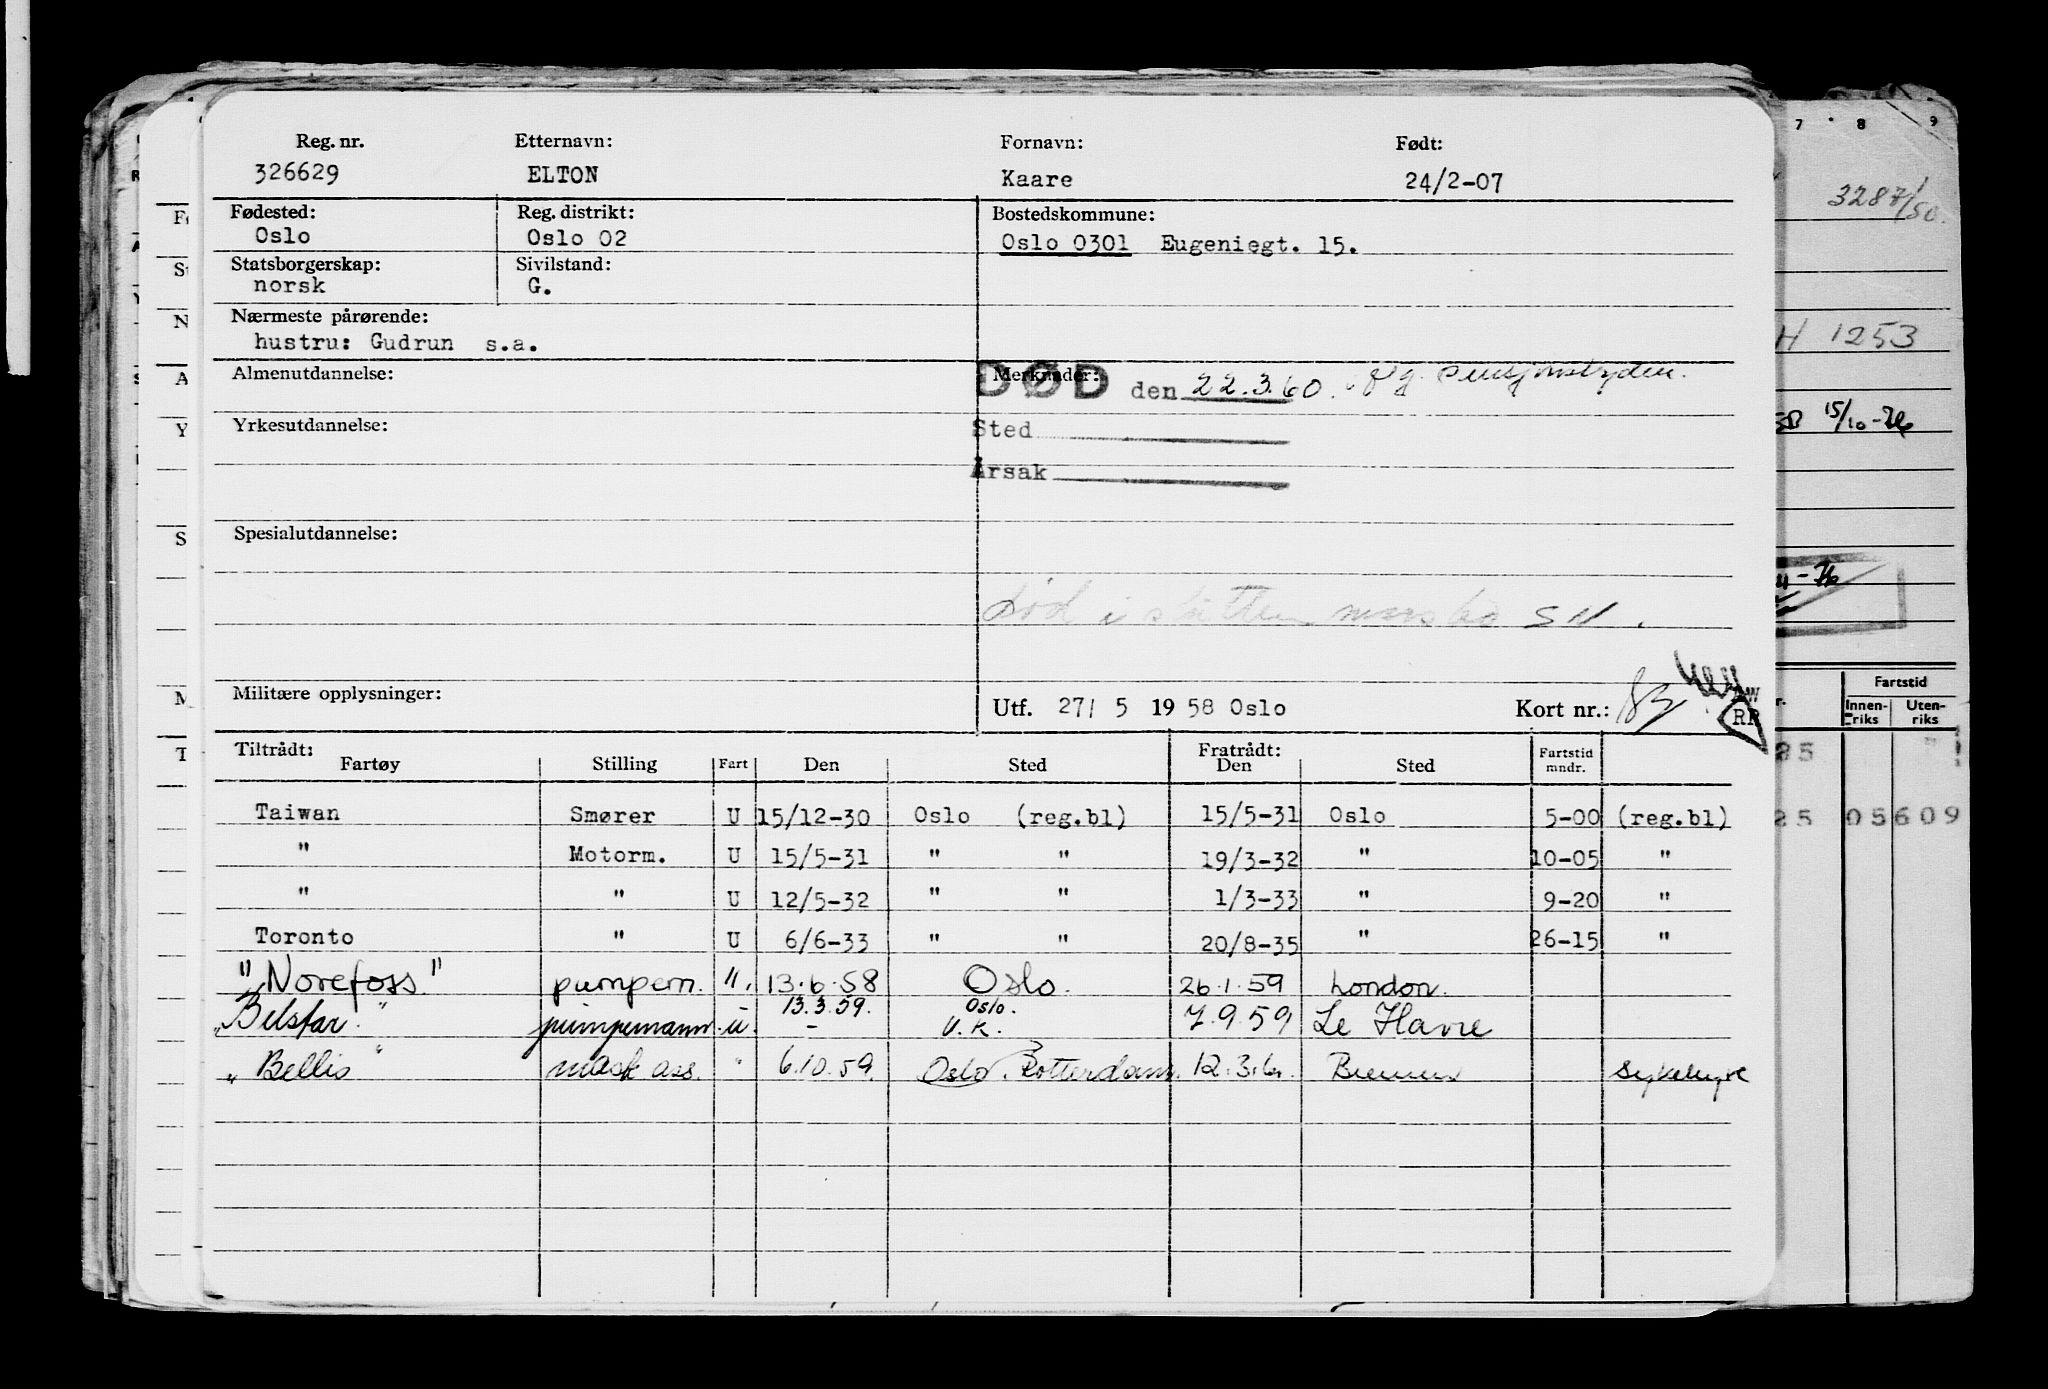 Reg. nr. Etternavn: Fornavn: Født:
326629 ELTON Kaare 24/2-07
Fødested: Reg. distrikt: Bostedskommune:
Oslo Oslo 02 Oslo 0301 Eugeniegt. 15.
Statsborgerskap: Sivilstand:
norsk G.
Nærmeste pårørende:
hustru: Gudrun s.a.
Almenutdannelse: Merknader:
DØD den 22.3.60.
Yrkesutdannelse: Sted
Årsak
Spesialutdannelse:
død i
Militære opplysninger: Utf. 27/ 5 1958 Oslo Kort nr.:
RR
Tiltrådt: Fratrådt:
Fartøy Stilling Fart Den Sted Den Sted Fartstid mndr.
Taiwan Smører U 15/12-30 Oslo (reg.bl) 15/5-31 Oslo 5-00 (reg.bl)
" Motorm. U 15/5-31 " " 19/3-32 " 10-05 "
" " U 12/5-32 " " 1/3-33 " 9-20 "
Toronto " U 6/6-33 " " 20/8-35 " 26-15 "
"Norefoss" pumpem. ". 13.6.58 Oslo. 26.1.59 London.
13.3.59. Oslo.
"Belstar" pumpemann. u. - U.K. 7.9.59 Le Havre
"Bellis" mask ass. " 6.10.59. Oslo. Rotterdam. 12.3.60. Bremen
7 8 9
3287/50.
H 1253
15/10-76
Fartstid
Innenriks Utenriks
85
25 05609